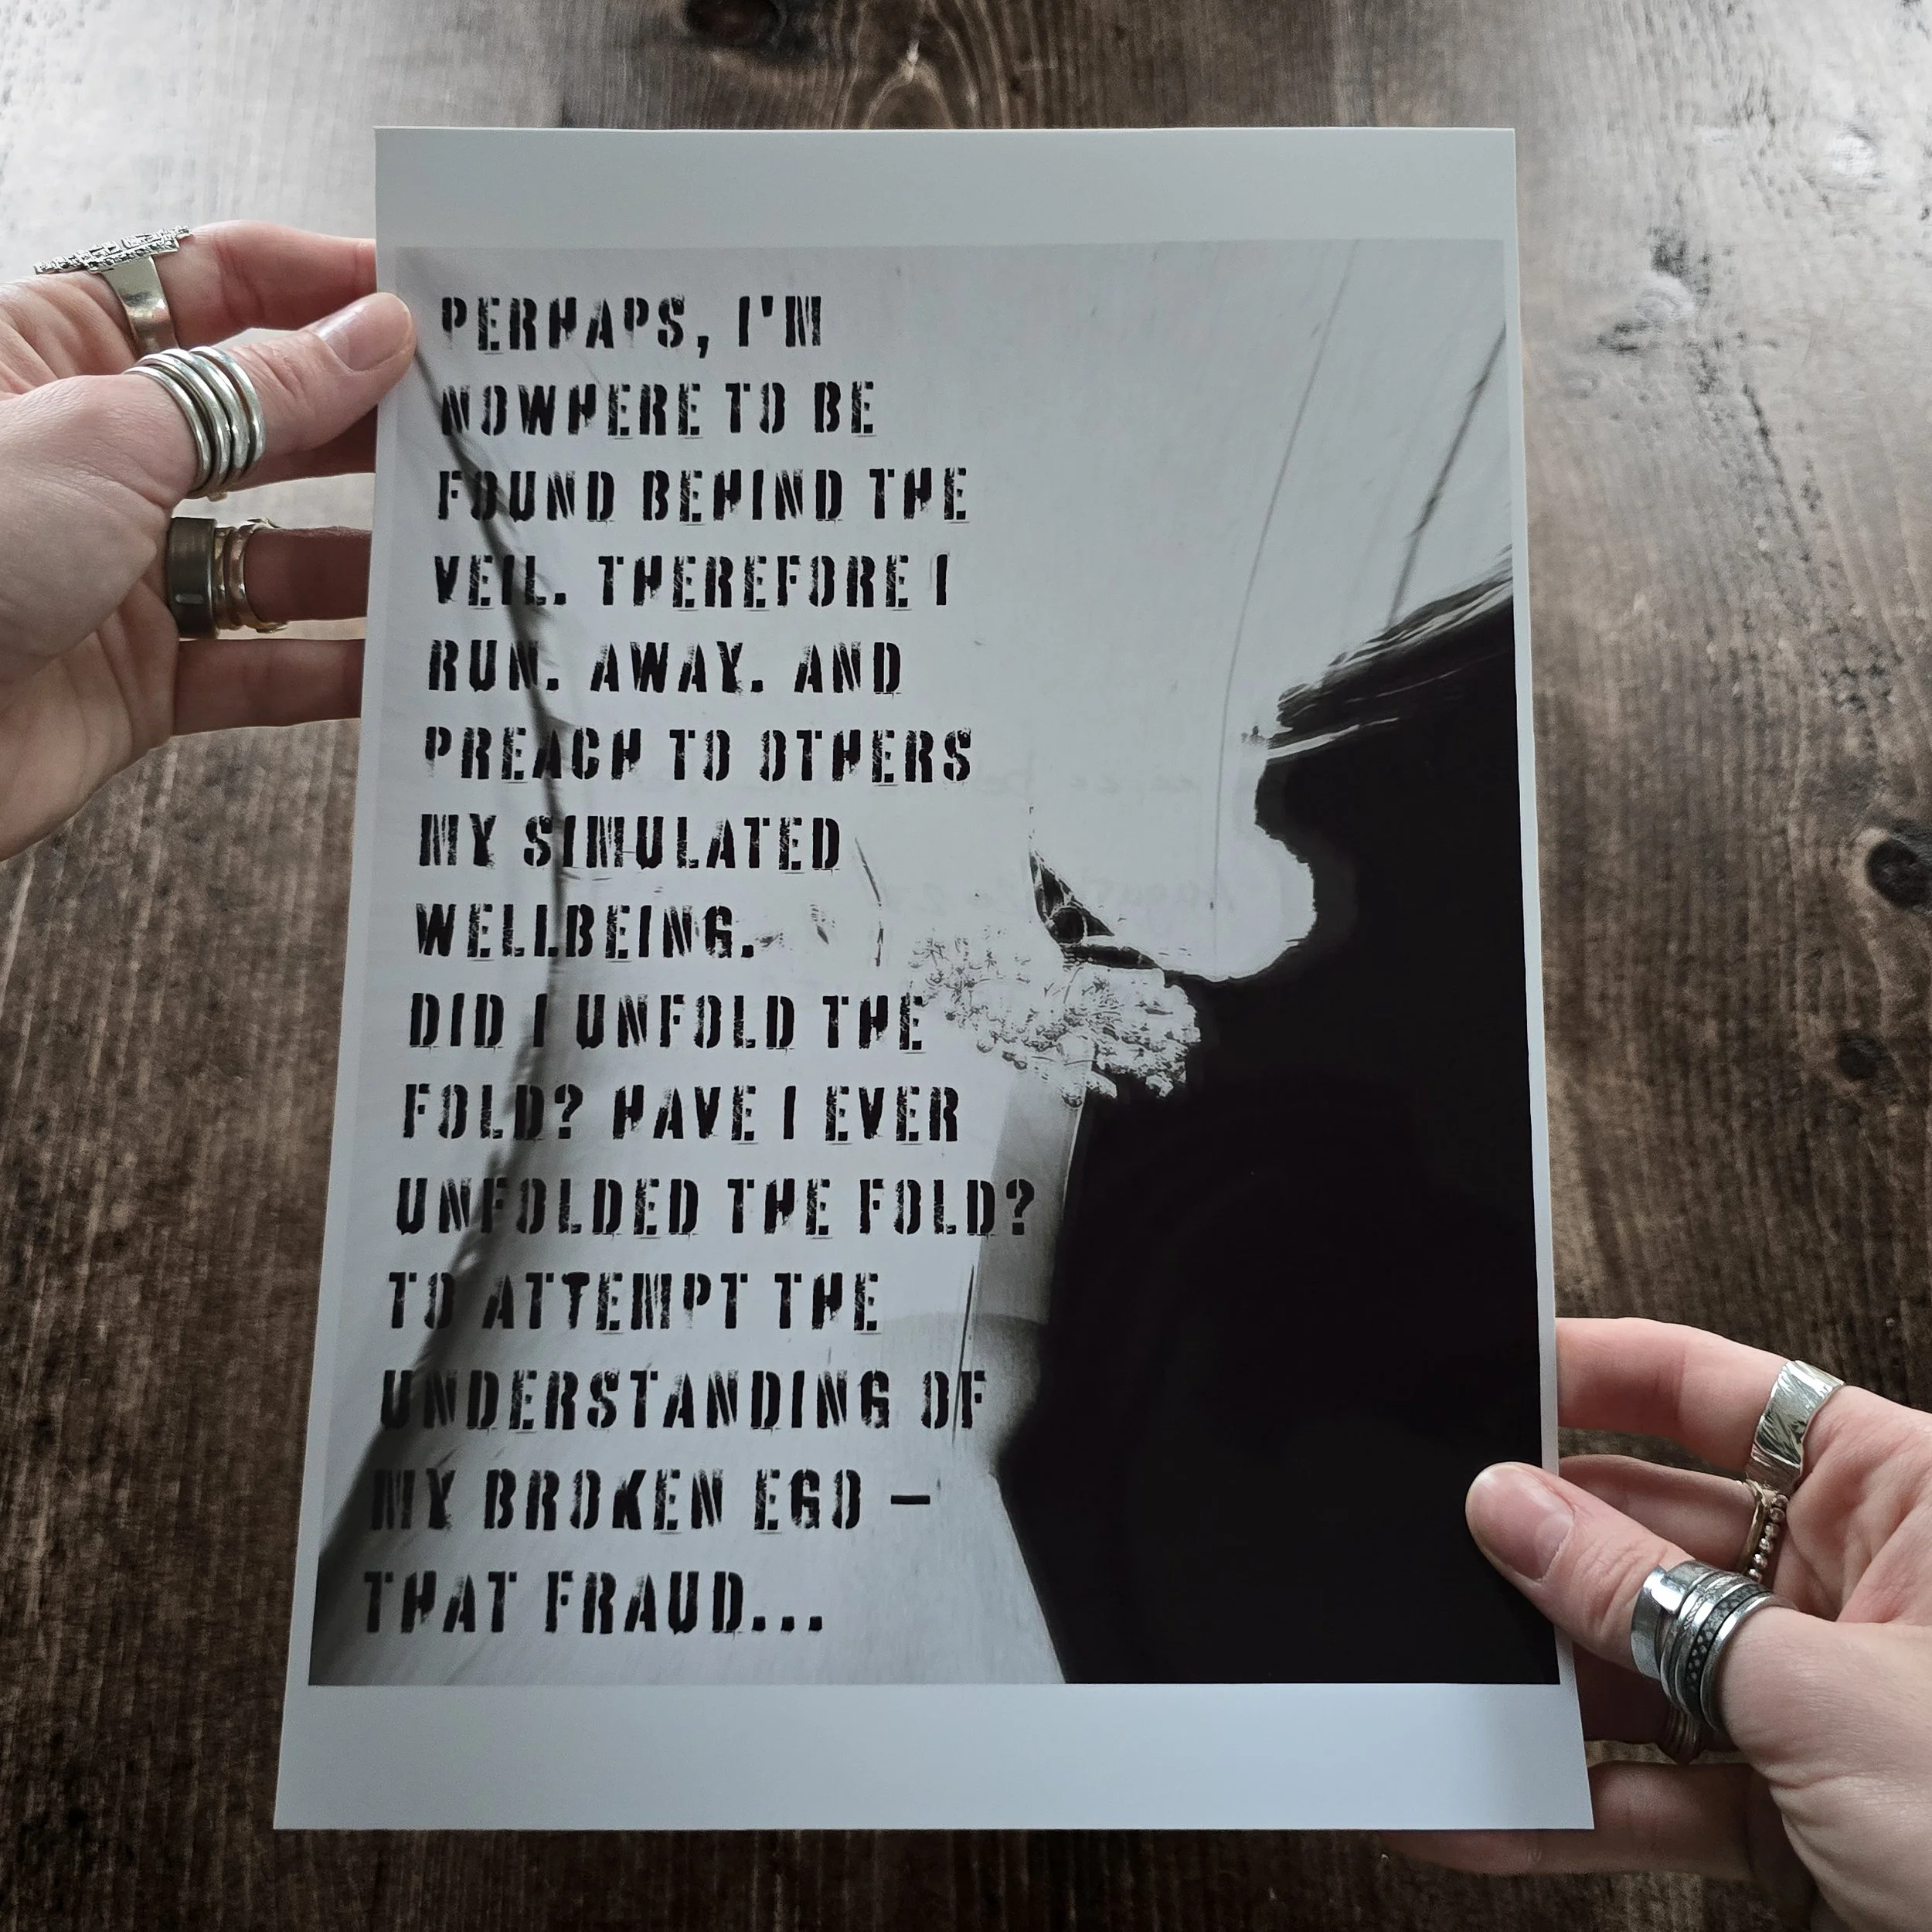 PERHAPS, I'M
NOWHERE TO BE
FOUND BEHIND THE
VEIL. THEREFORE I
RUN. AWAY. AND
PREACH TO OTHERS
MY SIMULATED
WELLBEING.
DID I UNFOLD THE
FOLD? HAVE I EVER
UNFOLDED THE FOLD?
TO ATTEMPT THE
UNDERSTANDING OF
MY BROKEN EGO –
THAT FRAUD...